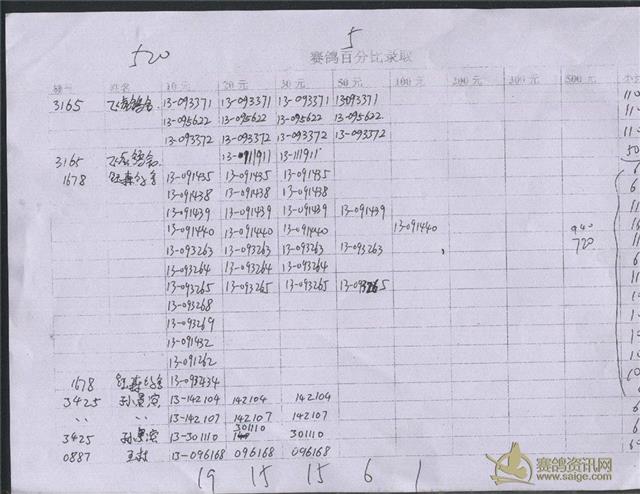 520 5
赛鸽百分比录取
姓名 10元 20元 30元 50元 100元 200元 300元 500元
3165 飞 鸽舍 13-093371 13-093371 13-093371 13-093371
13-095622 13-095622 13-095622 13-095622
13-093372 13-093372 13-093372 13-093372
3165 飞 鸽舍 13-111911
1678 13-091435 13-091435 13-091435
13-091438 13-091438 13-091438
13-091439 13-091439 13-091439 13-091439
13-091440 13-091440 13-091440 13-091440 940
13-093263 13-093263 13-093263 13-093263 720
13-093264 13-093264 13-093264
13-093265 13-093265 13-093265 13-093265
13-093268
13-093269
13-091432
13-091262
1678 13-093434
3425 孙 13-142104 142104 142104
〃 〃 13-142107 142107 142107
3425 孙 13-301110 301110 301110
0887 王 13-096168 096168 096168
19 15 15 6 1
赛鸽资讯网
www.saige.com